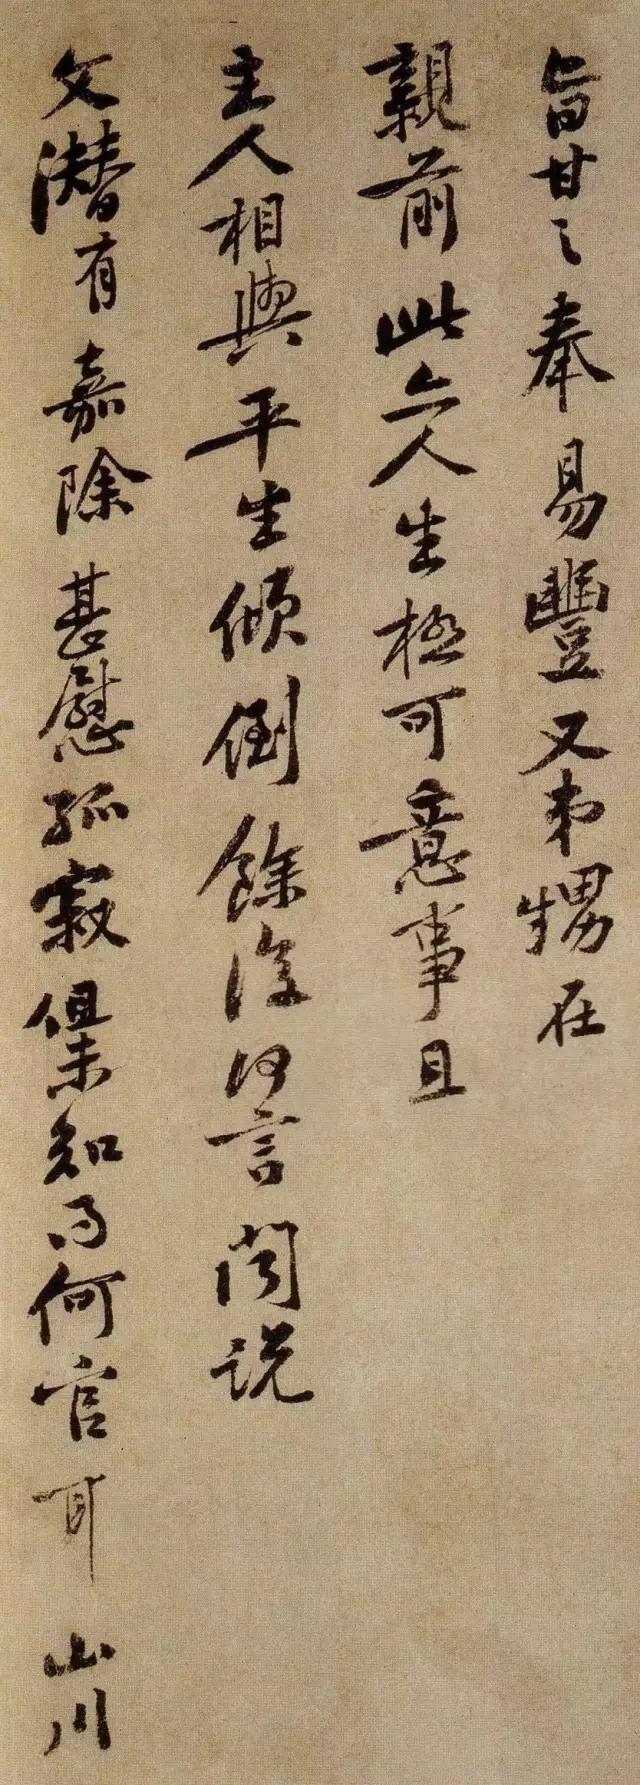 旨甘之奉易豐又弟甥在
親前此亦人生極可意事且
主人相與平生傾倒餘復何言閒説
文潜有嘉除甚慰孤寂但未知得何官耳山川